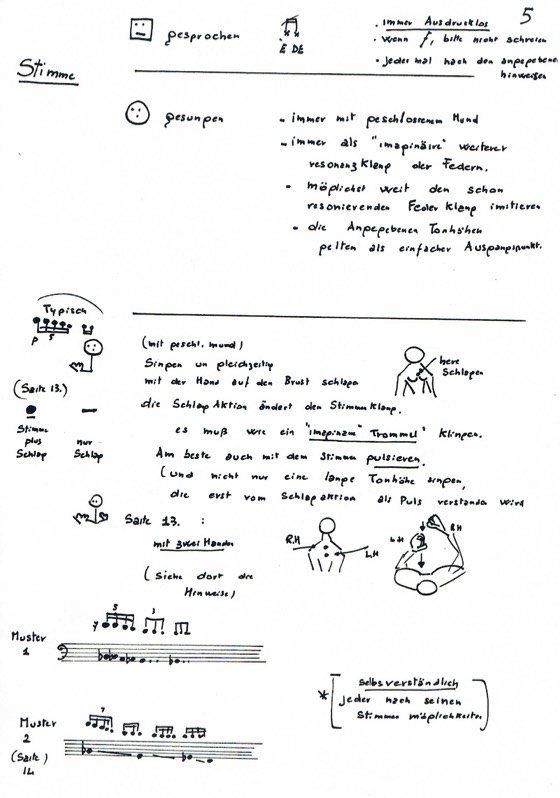 5
gesprochen
È DE
• immer Ausdruckslos
• wenn f, bitte nicht schreien
• jedes mal nach den angegebenen
hinweisen
Stimme
gesungen
- immer mit geschlossenem Mund
- immer als "imaginäire" weiterer
resonanz Klang der Federn.
• möglichst weit den schon
resonierenden Feder Klang imitieren
• die Angegebenen Tonhöhen
gelten als einfacher Ausgangspunkt.
Typisch
5
p
(mit geschl. mund)
Singen un gleichzeitig
mit der Hand auf den Brust schlagen
here
Schlagen
(Saite 13.)
die Schlag Aktion ändert den Stimmklang.
Stimme
plus
Schlag
nur
Schlag
es muß wie ein "imaginäre" Trommel" klingen.
Am beste auch mit dem Stimme pulsieren.
(und nicht nur eine lange Tonhöhe singen,
die erst vom Schlagaktion als Puls verstanden wird
Saite 13. :
mit zwei Handen
(Siehe dort die
Hinweise)
R.H
L.H
L.H
R.H
5
3
Muster
1
*
Selbsverständlich
jeder nach seinen
Stimmes möglichkeiten
7
Muster
2
(Saite)
14